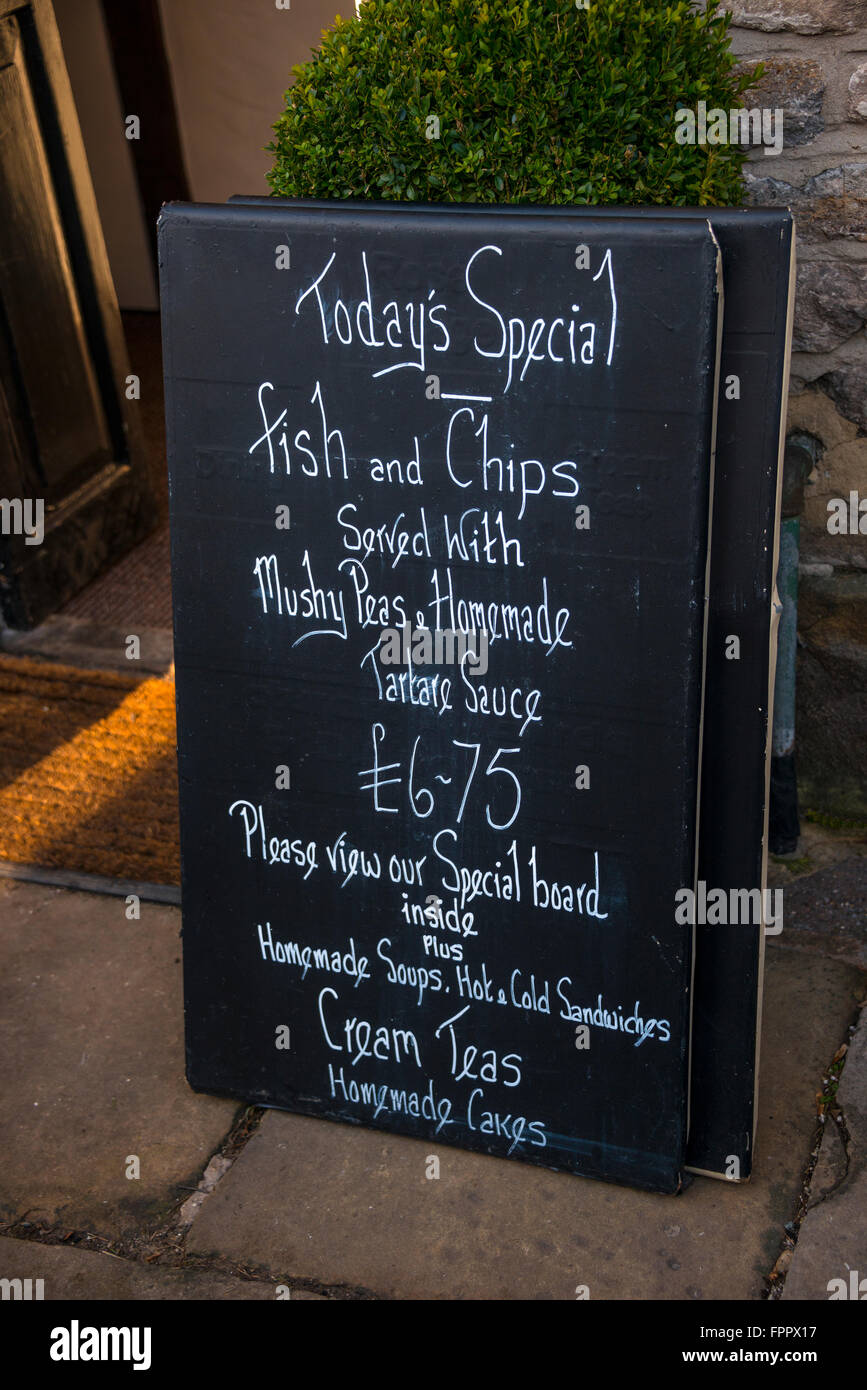 Today's Special
fish and Chips
Served With
Mushy Peas & Homemade
Tartare Sauce
£6-75
Please view our Special board
inside
Plus
Homemade Soups. Hot & Cold Sandwiches
Cream Teas
Homemade Cakes
alamy
Image ID: FPPX17
www.alamy.com